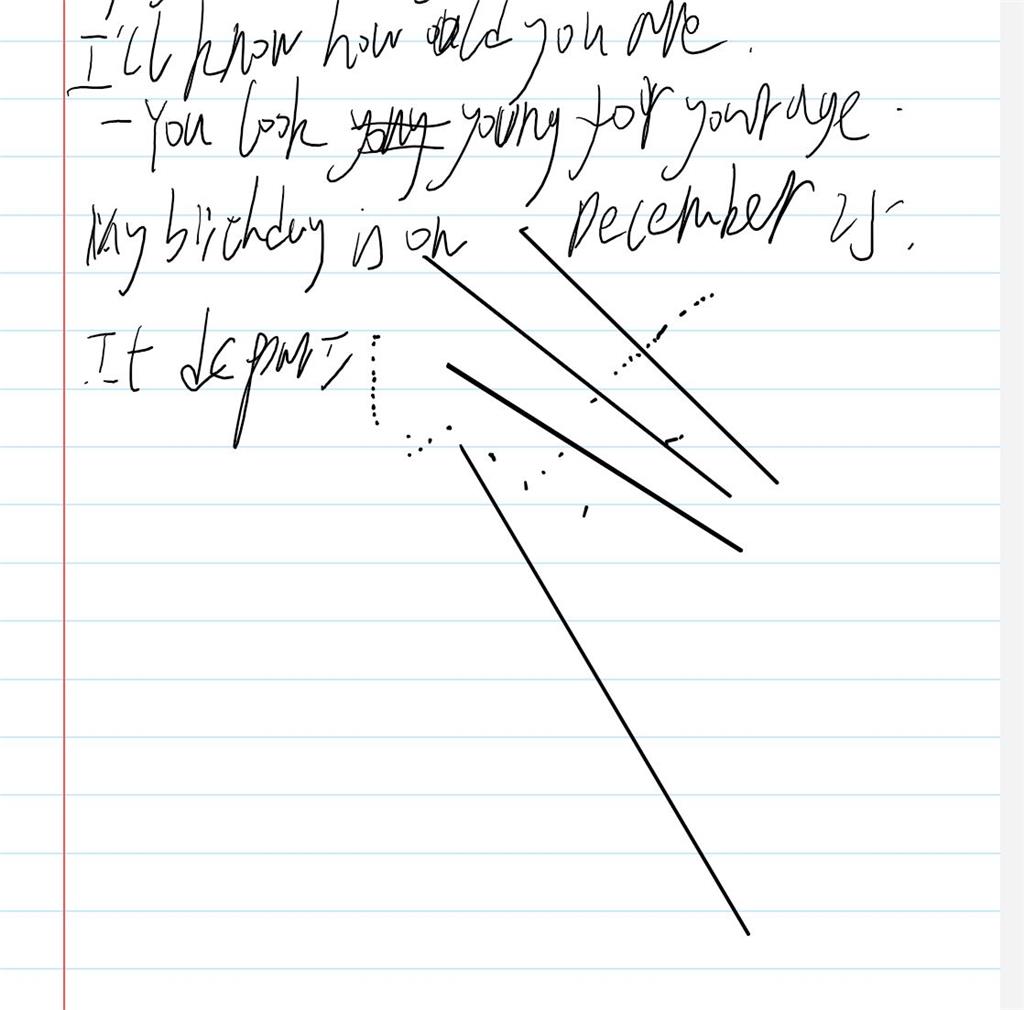 I'll know how old you are.
- You look young for your age.
My birthday is on December 25.
It